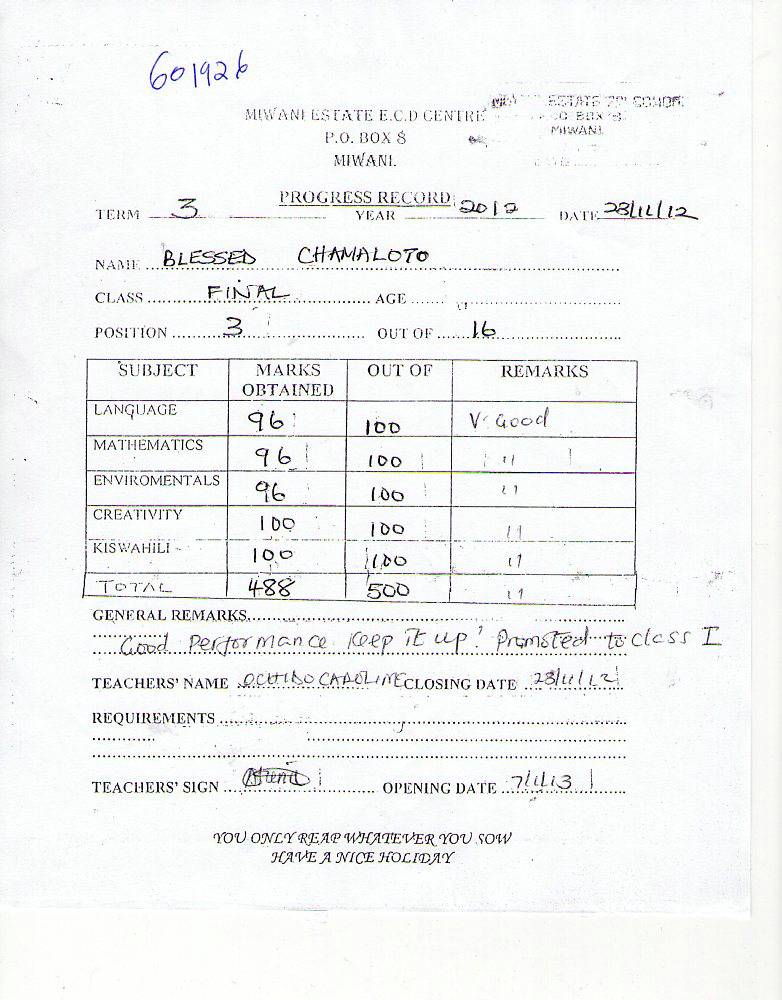 601926
MIWANI ESTATE E.C.D CENTRE
P.O. BOX 8
MIWANI.
ESTATE
BOX 8
MIWANI
PROGRESS RECORD
TERM 3 YEAR 2012 DATE 28/11/12
NAME BLESSED CHAMALOTO
CLASS FINAL AGE
POSITION 3 OUT OF 16
SUBJECT MARKS OBTAINED OUT OF REMARKS
LANGUAGE 96 100 V. Good
MATHEMATICS 96 100 "
ENVIROMENTALS 96 100 "
CREATIVITY 100 100 "
KISWAHILI 100 100 "
TOTAL 488 500 "
GENERAL REMARKS
Good Performance Keep it up! Promoted to class I
TEACHERS' NAME OCHIBO CAROLINE CLOSING DATE 28/11/12
REQUIREMENTS
TEACHERS' SIGN OPENING DATE 7/1/13
YOU ONLY REAP WHATEVER YOU SOW
HAVE A NICE HOLIDAY